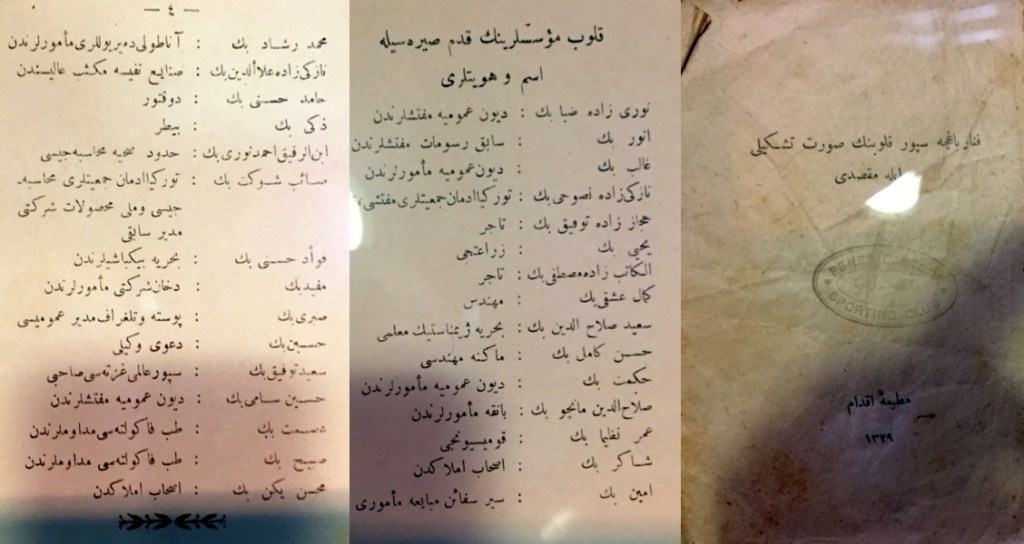 فنار باغچه سپور قلوبنك صورت تشكيلى
ايله مقصدى
SPORTING CLUB
مطبعهٔ اقدام
١٣٢٩
قلوب مؤسسلرينك قدم صيره سيله
اسم و هويتلرى
نورى زاده ضيا بك : ديون عموميه مفتشلرندن
انور بك : سابق رسومات مفتشلرندن
غالب بك : ديون عموميه مأمورلرندن
نازكى زاده نصوحى بك : توركيا ادمان جمعيتلرى مفتشى
حجاز زاده توفيق بك : تاجر
يحيى بك : زراعتجى
الكاتب زاده مصطفى بك : تاجر
كمال عشقى بك : مهندس
سعيد صلاح الدين بك : بحريه ژيمناستيك معلمى
حسن كامل بك : ماكنه مهندسى
حكمت بك : ديون عموميه مأمورلرندن
صلاح الدين مانجو بك : بانقه مأمورلرندن
عمر نظيما بك : قوميسيونجى
شاكر بك : اصحاب املاكدن
امين بك : سير سفائن مبايعه مأمورى
— ٤ —
محمد رشاد بك : آناطولى دميريوللرى مأمورلرندن
نازكى زاده علاء الدين بك : صنايع نفيسه مكتب عاليسندن
حامد حسنى بك : دوقتور
ذكى بك : بيطر
ابن الرفيق احمد نورى بك : حدود صحيه محاسبه جيسى
صائب شوكت بك : توركيا ادمان جمعيتلرى محاسبه‌-
جيسى وملى محصولات شركتى
مدير سابقى
فؤاد حسنى بك : بحريه بيكباشيلرندن
مفيد بك : دخان شركتى مأمورلرندن
صبرى بك : پوسته و تلغراف مدير عموميسى
حسين بك : دعوى وكيلى
سعيد توفيق بك : سپور عالمى غزته سى صاحبى
حسين سامى بك : ديون عموميه مفتشلرندن
عصمت بك : طب فاكولته سى مداوملرندن
صبيح بك : طب فاكولته سى مداوملرندن
محسن يكن بك : اصحاب املاكدن